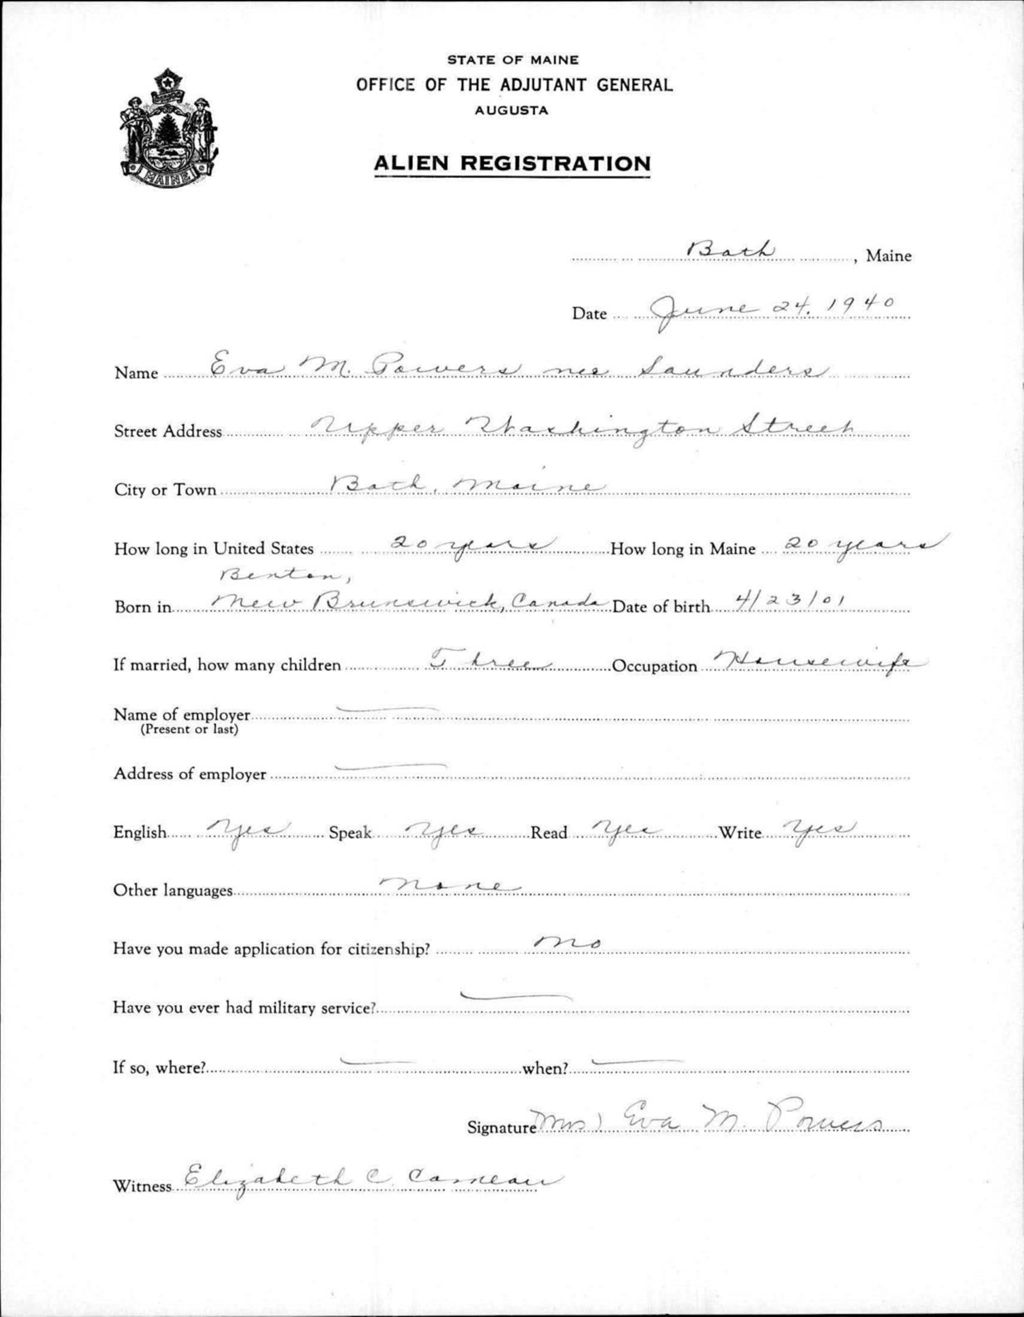 STATE OF MAINE
OFFICE OF THE ADJUTANT GENERAL
AUGUSTA
ALIEN REGISTRATION
MAINE
Bath, Maine
Date June 24, 1940
Name Eva M. Powers nee Saunders
Street Address Upper Washington Street
City or Town Bath, Maine
How long in United States 20 years How long in Maine 20 years
Benton,
Born in New Brunswick, Canada Date of birth 4/23/01
If married, how many children Three Occupation Housewife
Name of employer —
(Present or last)
Address of employer —
English Yes Speak Yes Read Yes Write Yes
Other languages None
Have you made application for citizenship? No
Have you ever had military service? —
If so, where? — when? —
Signature Mrs) Eva M. Powers
Witness Elizabeth C. Comeau